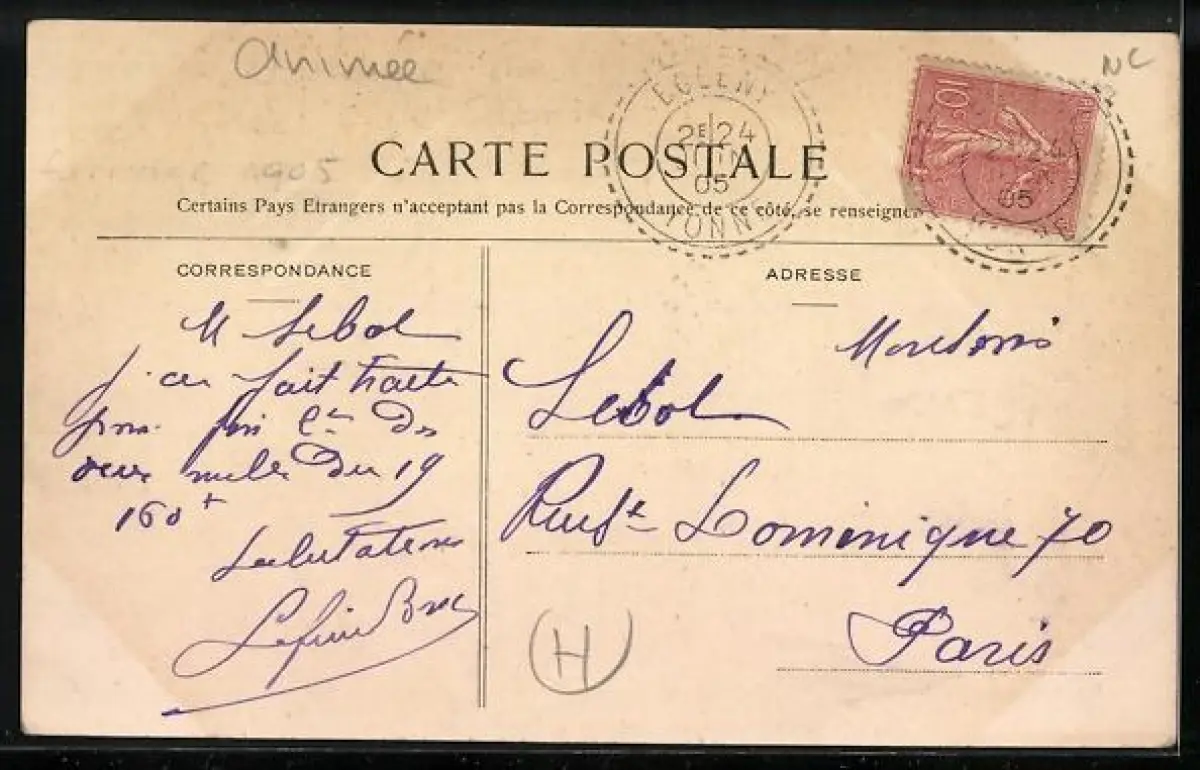 Animée
NC
EGLENY
2E 24
JUIN
05
YONNE
10c
05
CARTE POSTALE
1905
Certains Pays Etrangers n'acceptant pas la Correspondance de ce côté, se renseigner
CORRESPONDANCE
M Lebol
fait traite
fin des
du 19
160
Salutations
ADRESSE
Monsieur
Lebol
Rue St Dominique 70
Paris
H